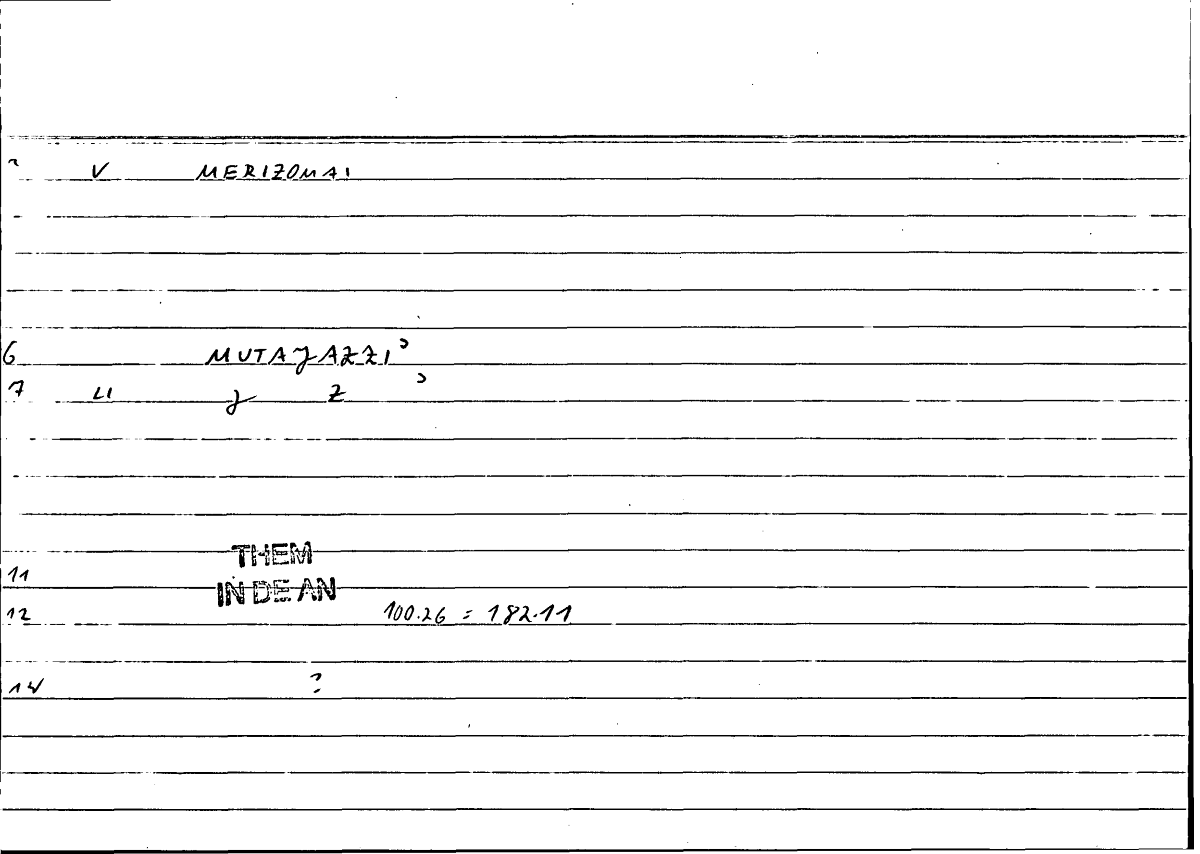 V MERIZOMAI
6 MUTAJAZZIʾ
7 LI J Z ʾ
THEM
11
IN DE AN
12 100.26 = 182.11
14 ?